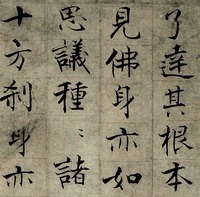 了達其根本
見佛身亦如
思議種〻諸
十方刹身亦